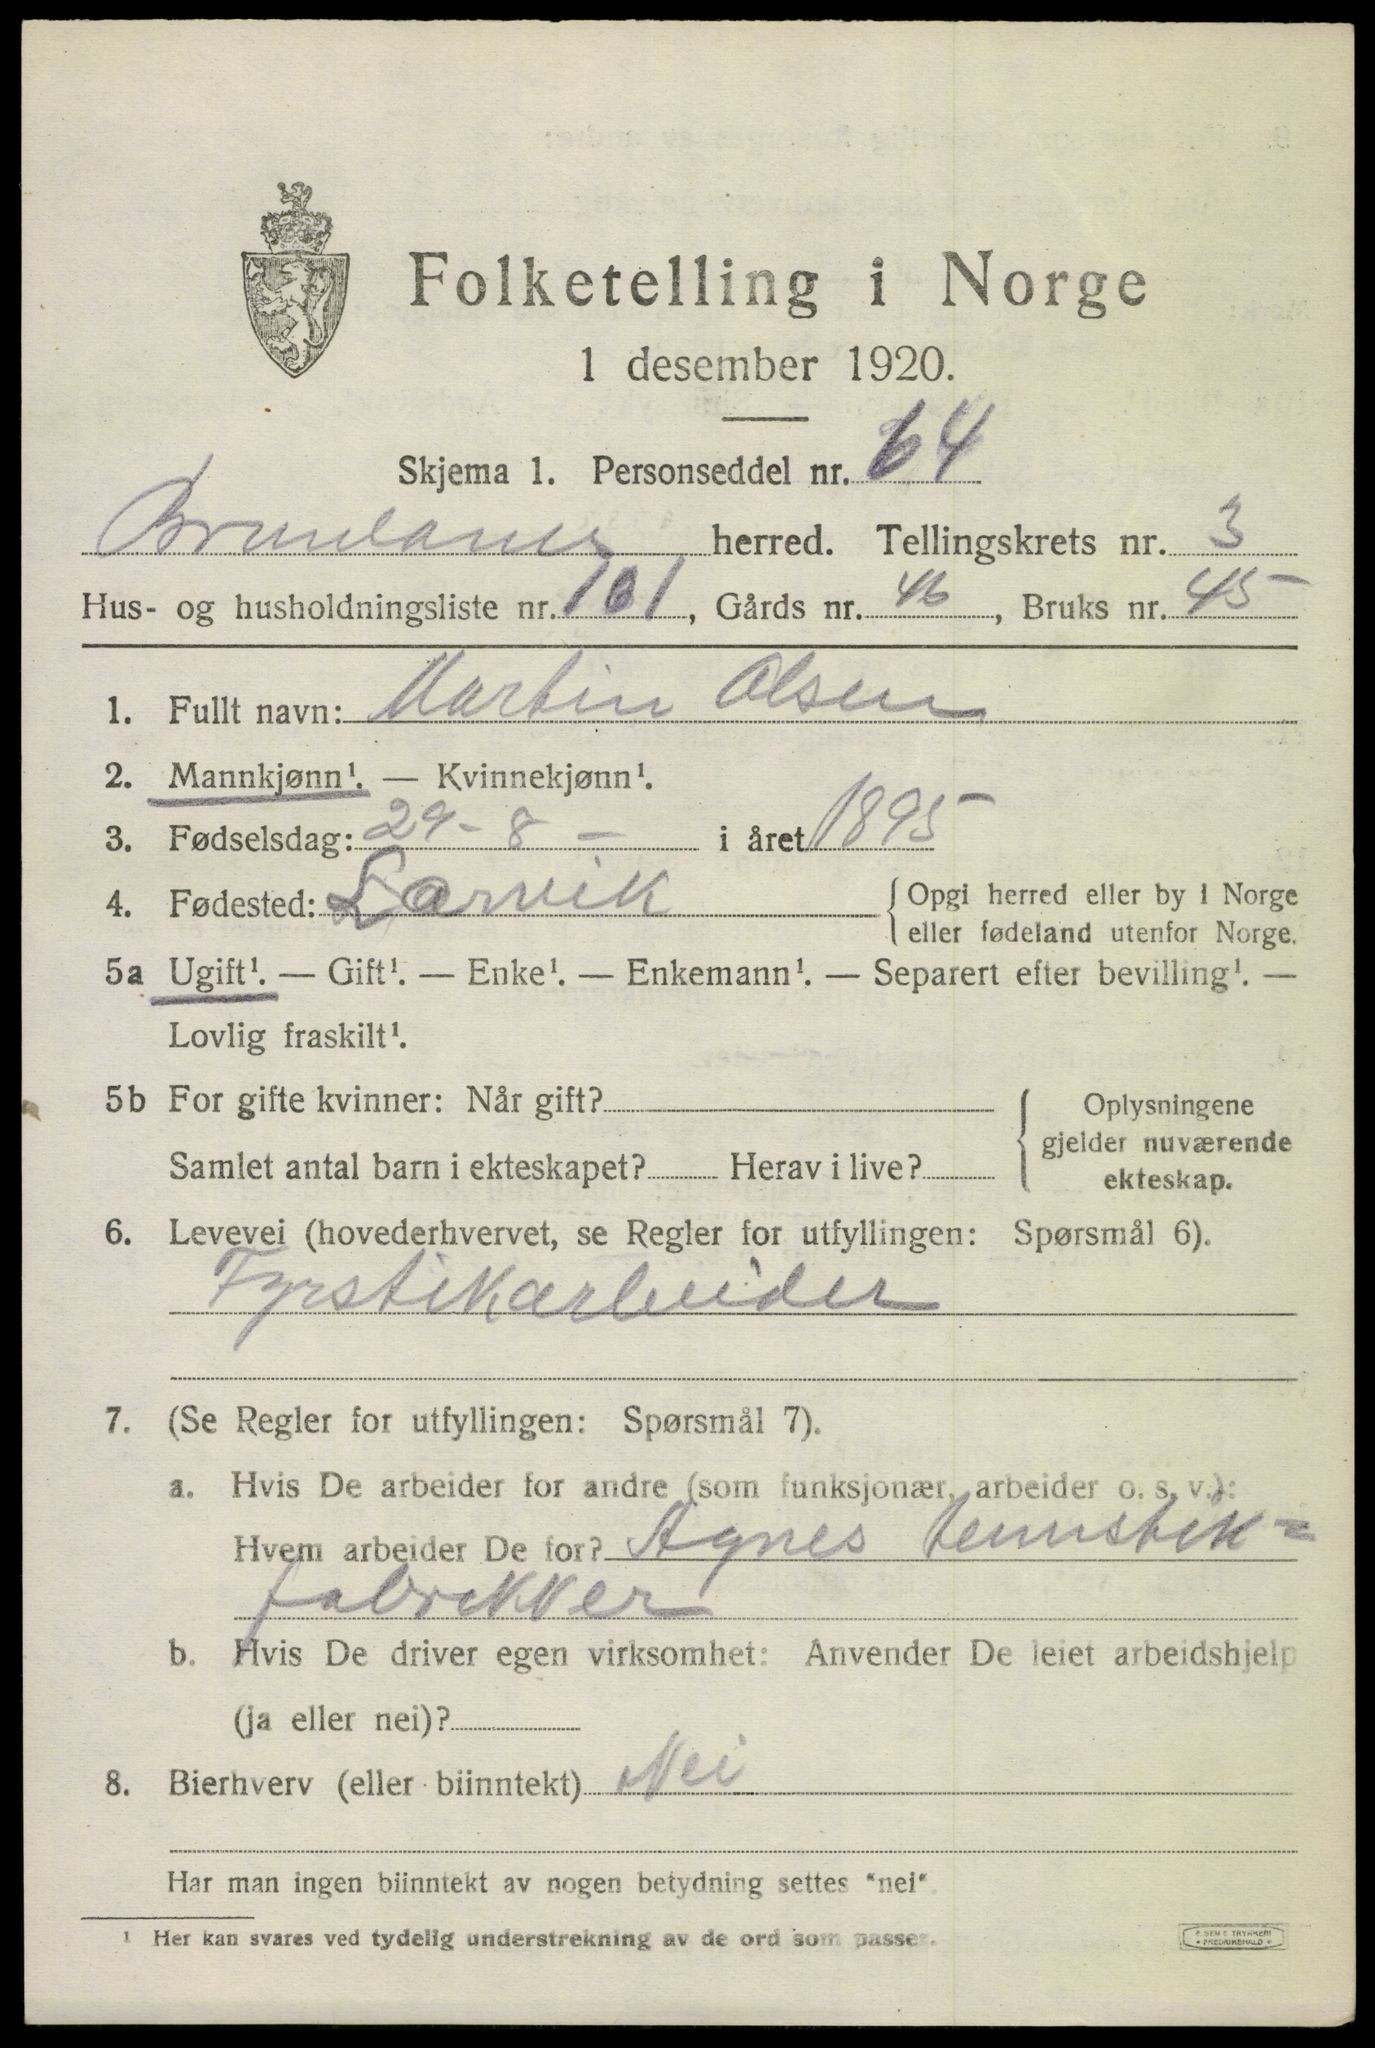 Folketelling i Norge
1 desember 1920.
Skjema 1. Personseddel nr. 64
Brunlanes herred. Tellingskrets nr. 3
Hus- og husholdningsliste nr. 101, Gårds nr. 46, Bruks nr. 45
1. Fullt navn: Martin Olsen
2. Mannkjønn¹. — Kvinnekjønn¹.
3. Fødselsdag: 29-8- i året 1895
4. Fødested: Larvik { Opgi herred eller by i Norge
eller fødeland utenfor Norge.
5a Ugift¹. — Gift¹. — Enke¹. — Enkemann¹. — Separert efter bevilling¹. —
Lovlig fraskilt¹.
5b For gifte kvinner: Når gift?
Samlet antal barn i ekteskapet? Herav i live?
{ Oplysningene
gjelder nuværende
ekteskap.
6. Levevei (hovederhvervet, se Regler for utfyllingen: Spørsmål 6).
Fyrstikarbeider
7. (Se Regler for utfyllingen: Spørsmål 7).
a. Hvis De arbeider for andre (som funksjonær, arbeider o. s. v.):
Hvem arbeider De for? Agnes tennstik=
fabrikker
b. Hvis De driver egen virksomhet: Anvender De leiet arbeidshjelp
(ja eller nei)?
8. Bierhverv (eller biinntekt) Nei
Har man ingen biinntekt av nogen betydning settes "nei".
¹ Her kan svares ved tydelig understrekning av de ord som passer.
TRYKKERI
FREDRIKSHALD